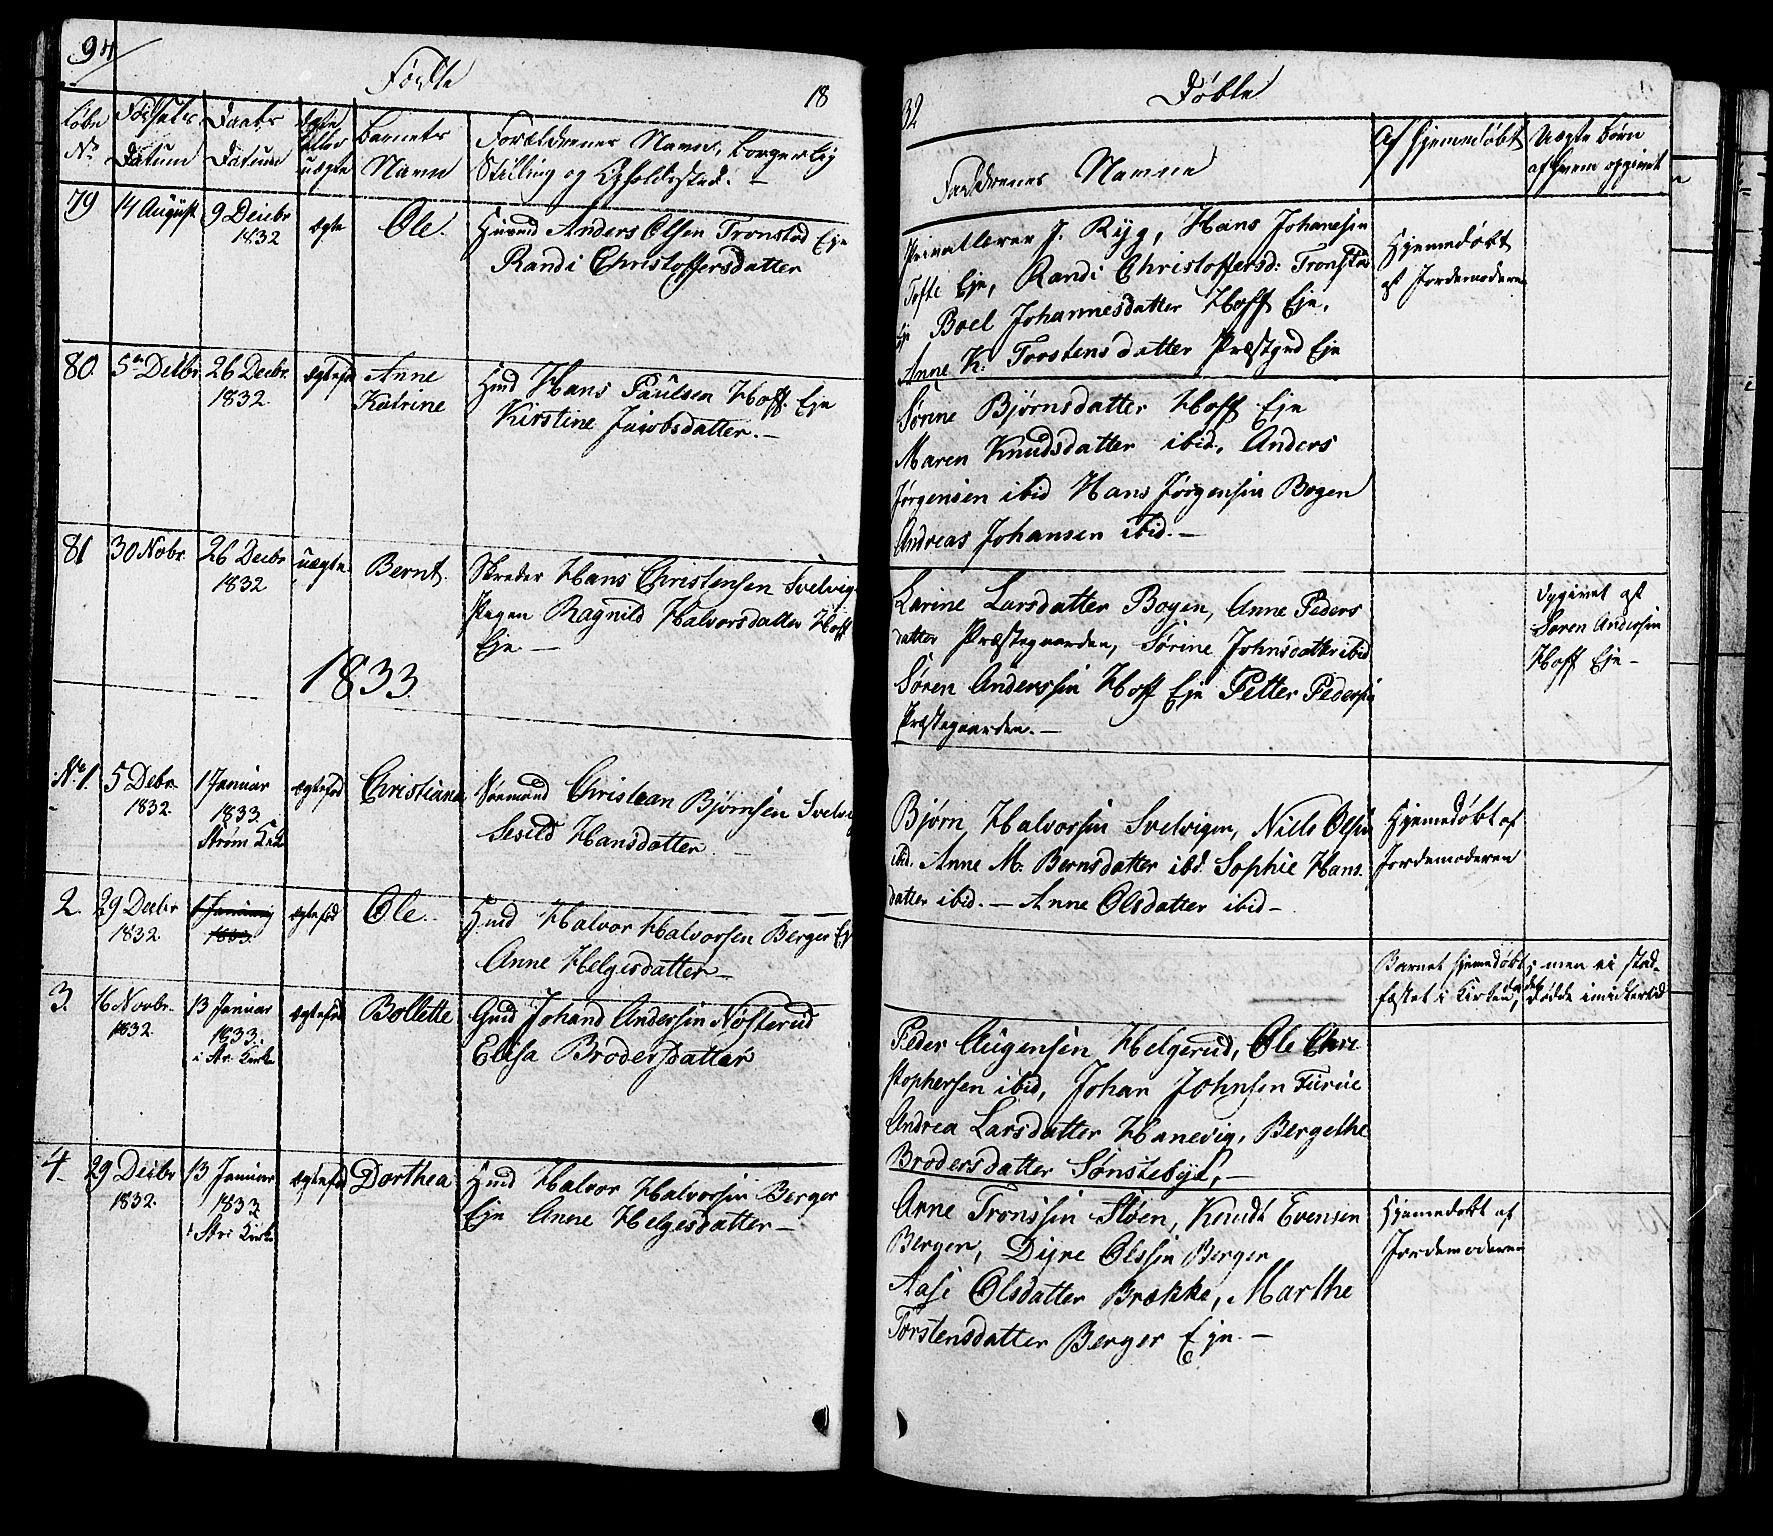 94
Fødte
18
Løbe No
Fødsels Datum
Daabs Datum
Ægte eller uægte
Barnets Navn
Forældrenes Navn, borgerlig
Stilling og Opholdssted.
79
14 August
9 Decbr
1832
ægte
Ole.
Huusmd Anders Olsen Tronstad Eje
Randi Christoffersdatter
80
5te Decbr
26 Decbr.
1832.
ægtefød
Anne
Katrine
Hmd Hans Paulsen Hoff. Eje
Kirstine Jacobsdatter. –
81
30 Novbr.
26 Decbr
1832
uægte
Bernt.
Skreder Hans Christensen Svelvig
Pigen Ragnild Halvorsdatter Hoff
Eje –
1833.
No 1.
5 Debr.
1832.
1 Januar
1833.
Strøm Kirk
ægtefød
Christiane
Søemand Christean Bjørnsen Svelvig
Sesild Hansdatter
2.
29 Decbr
1832.
1 Januar
1833.
ægtefød
Ole.
Hmd Halvor Halvorsen Berger Ej
Anne Helgesdatter –
3.
16 Novbr.
1832.
13 Januar
1833.
i Str. Kirke
ægtefød
Bollette
Gmd Johand Andersen Nøsterud
Elisa Brodersdatter
4
29 Decbr
1832.
13 Januar
1833
i Str. Kirke
ægtefød
Dorthea
Hmd Halvor Halvorsen Berger
Eje Anne Helgesdatter –
32
Døbte
Faddrenes Navne
Af Hjemmedøbt
Uægte Børn
af hvem opgivet
Privatlærer J. Ryg, Hans Johanesen
Tofte Eje, Randi Christoffersd: Tronstad
Ej Boel Johannesdatter Hoff Eje,
Anne K: Torstensdatter Præstgrd Eje
Hjemmedøbt
af Jordemoderen
Sørine Bjørnsdatter Hoff Eje
Maren Knudsdatter ibid, Anders
Jørgensen ibid Hans Jørgensen Bogen
Andreas Johansen ibid. –
Larine Larsdatter Bogen, Anne Peders
datter Præstegaarden, Sørine Johnsdatter ibid
Søren Anderssen Hoff Eje Petter Pedersen
Præstegaarden. –
Opgivet af
Søren Andersen
Hoff Eje –
Bjørn Halvorsen Svelvigen, Niels Olsen
ibid. Anne M. Bernsdatter ibd. Sophie Hans
datter ibid. – Anne Olsdatter ibid –
Hjemmedøbt af
Jordemoderen
Barnet hjemmedøbt; men ei stad-
fæstet i Kirken, da det døde imidlertid
Peder Augensen Helgerud, Ole Chri
stophersen ibid, Johan Johnsen Furue
Andrea Larsdatter Hanevig, Bergethe
Brodersdatter Sønstebye, –
Arne Tronssen Støen, Knudt Evensen
Berger, Dyre Olssen Berger
Aase Olsdatter Brække, Marthe
Torstensdatter Berger Eje. –
Hjemmedøbt af
Jordemoderen